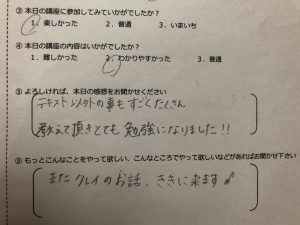 ③ 本日の講座に参加してみていかがでしたか？
1．楽しかった　2．普通　3．いまいち
④ 本日の講座の内容はいかがでしたか？
1．難しかった　2．わかりやすかった　3．普通
⑤ よろしければ、本日の感想をお聞かせください
テキスト以外の事もすごくたくさん
教えて頂きとても勉強になりました!!
⑤ もっとこんなことをやって欲しい、こんなところでやって欲しいなどがあればお聞かせ下さい
またクレイのお話、ききに来ます♪